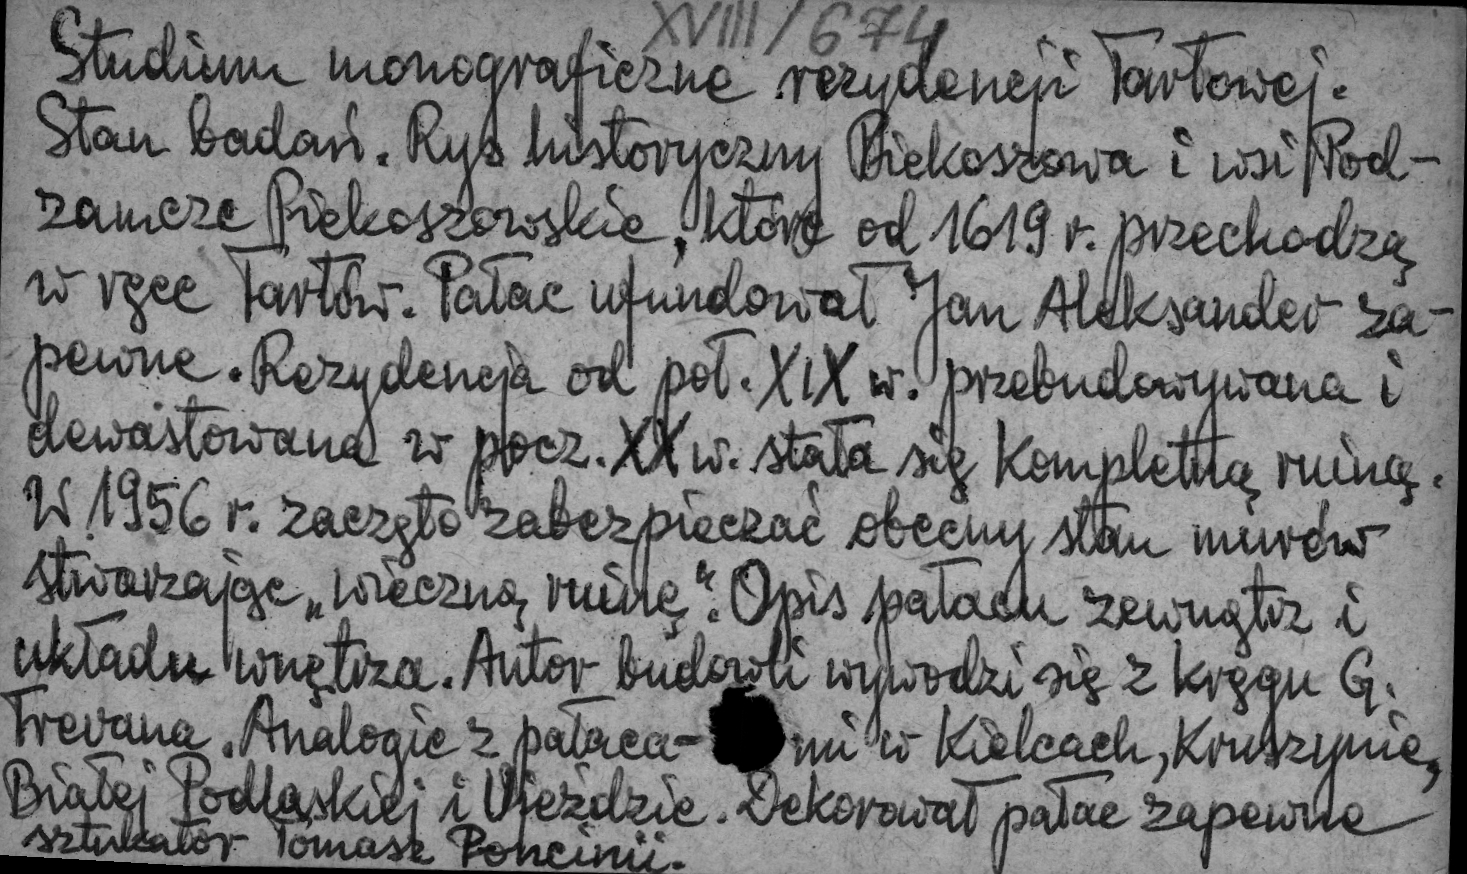 XVIII/674
Studium monograficzne rezydencji Tarłowej.
Stan badań. Rys historyczny Piekoszowa i wsi Pod-
zamcze Piekoszowskie, które od 1619 r. przechodzą
w ręce Tarłów. Pałac ufundował Jan Aleksander za-
pewne. Rezydencja od poł. XIX w. przebudowywana i
dewastowana w pocz. XX w. stała się kompletną ruiną.
W 1956 r. zaczęto zabezpieczać obecny stan murów
stwarzając „wieczną ruinę”. Opis pałacu zewnątrz i
układu wnętrza. Autor budowli wywodzi się z kręgu G.
Trevana. Analogie z pałaca-mi w Kielcach, Kruszynie,
Białej Podlaskiej i Ujeździe. Dekorował pałac zapewne
sztukator Tomasz Poncinii.